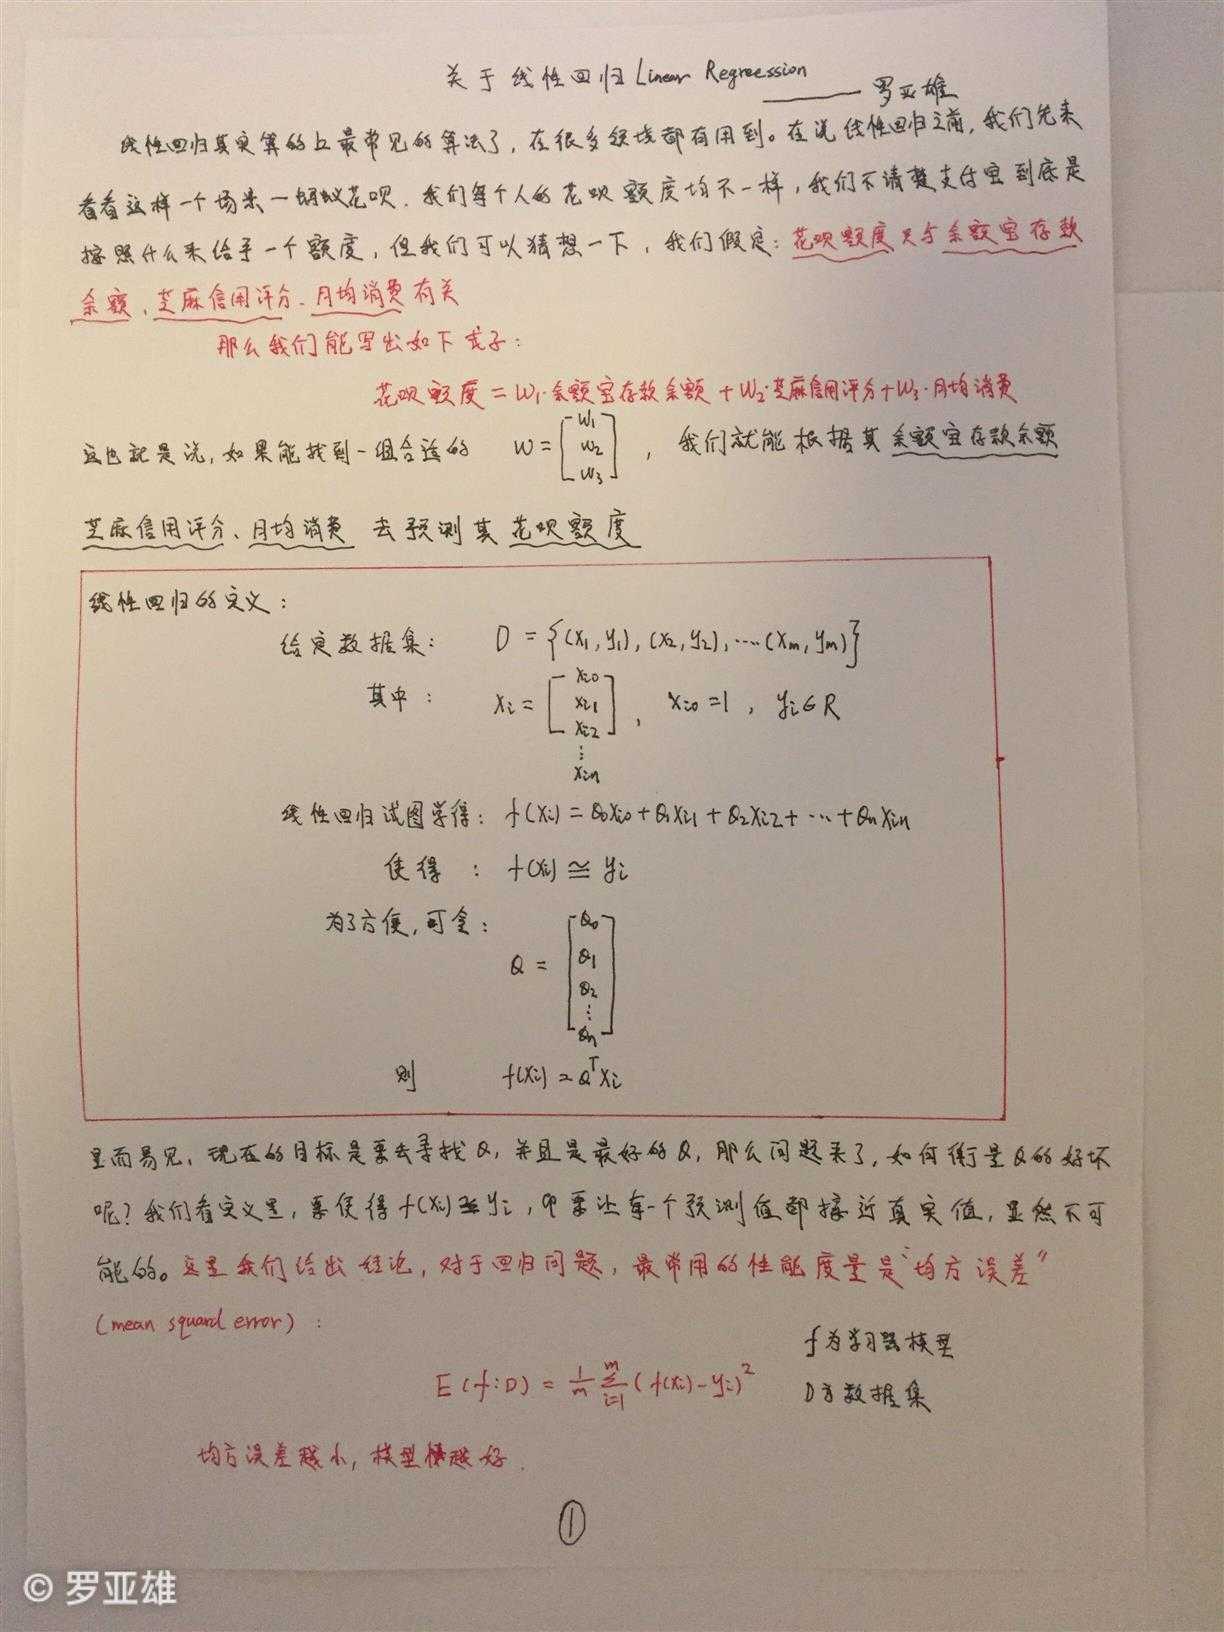 关于线性回归Linear Regreession
——罗亚雄
线性回归其实算的上最常见的算法了，在很多领域都有用到。在说线性回归之前，我们先来
看看这样一个场景—蚂蚁花呗．我们每个人的花呗额度均不一样，我们不清楚支付宝到底是
按照什么来给予一个额度，但我们可以猜想一下，我们假定：花呗额度只与余额宝存款
余额、芝麻信用评分、月均消费有关
那么我们能写出如下式子：
花呗额度=W1·余额宝存款余额+W2·芝麻信用评分+W3·月均消费
这也就是说，如果能找到一组合适的 W=[W1 W2 W3]，我们就能根据其余额宝存款余额
芝麻信用评分、月均消费 去预测其花呗额度
线性回归的定义：
给定数据集： D={(x1,y1),(x2,y2),…(xm,ym)}
其中： xi=[xi0 xi1 xi2 ⋮ xin]，xi0=1，yi∈R
线性回归试图学得：f(xi)=θ0xi0+θ1xi1+θ2xi2+…+θnxin
使得：f(xi)≅yi
为了方便,可令：
θ=[θ0 θ1 θ2 ⋮ θn]
则 f(xi)=θᵀxi
显而易见，现在的目标是要去寻找θ，并且是最好的θ，那么问题来了，如何衡量θ的好坏
呢？我们看定义里，要使得f(xi)≅yi，即要让每一个预测值都接近真实值，显然不可
能的。这里我们给出结论，对于回归问题，最常用的性能度量是“均方误差”
(mean squard error)：
f为学习器模型
E(f:D)=1/m Σ(i=1→m)(f(xi)-yi)²
D为数据集
均方误差越小，模型越好．
①
© 罗亚雄